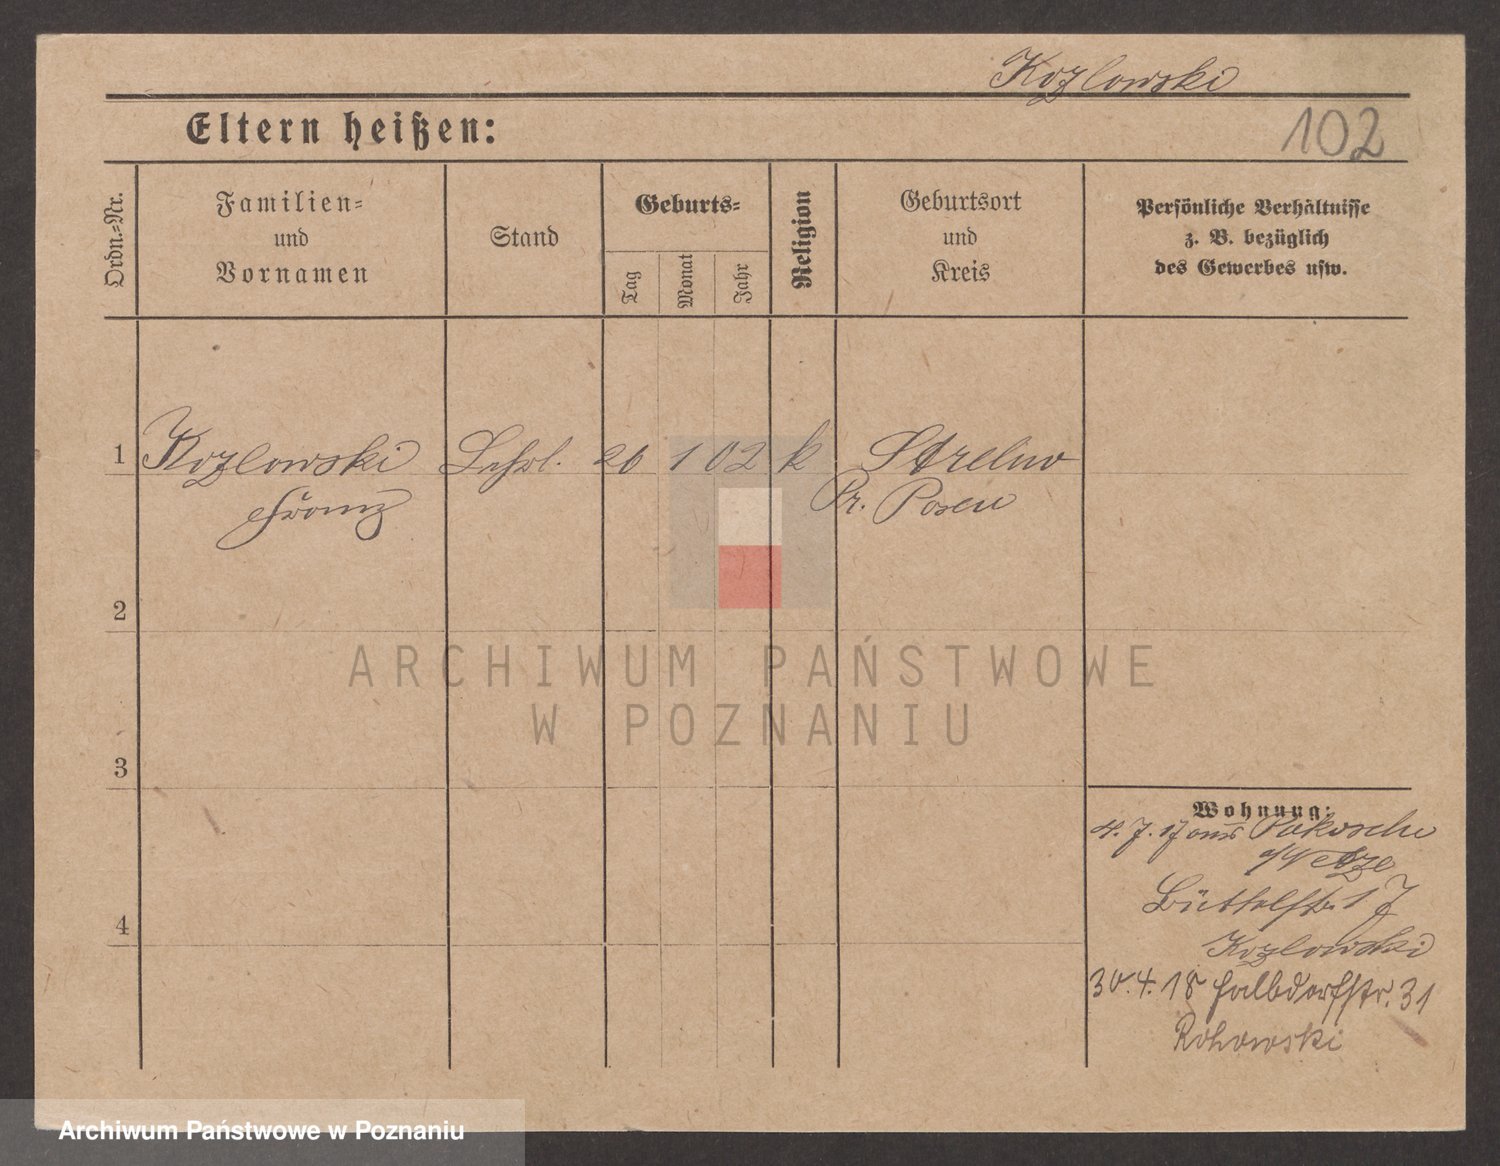 Kozlowski
Eltern heißen:
102
Ordn.-Nr.
Familien-
und
Vornamen
Stand
Geburts-
Tag
Monat
Jahr
Religion
Geburtsort
und
Kreis
Persönliche Verhältnisse
z. B. bezüglich
des Gewerbes usw.
1 Kozlowski Lehrl. 26 1 02 k Strelno
Franz Pr. Posen
2
3
4
Wohnung:
4. 7. 17 aus Pakosch
a/Netze
Büttelstr. 17
Kozlowski
30.4.18 Halbdorfstr. 31
Rohowski
ARCHIWUM PAŃSTWOWE
W POZNANIU
Archiwum Państwowe w Poznaniu